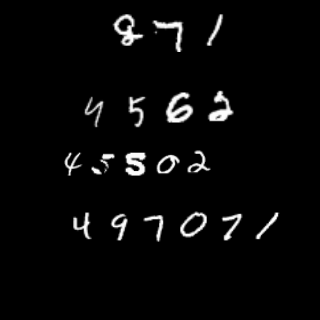 871
4562
45502
497071